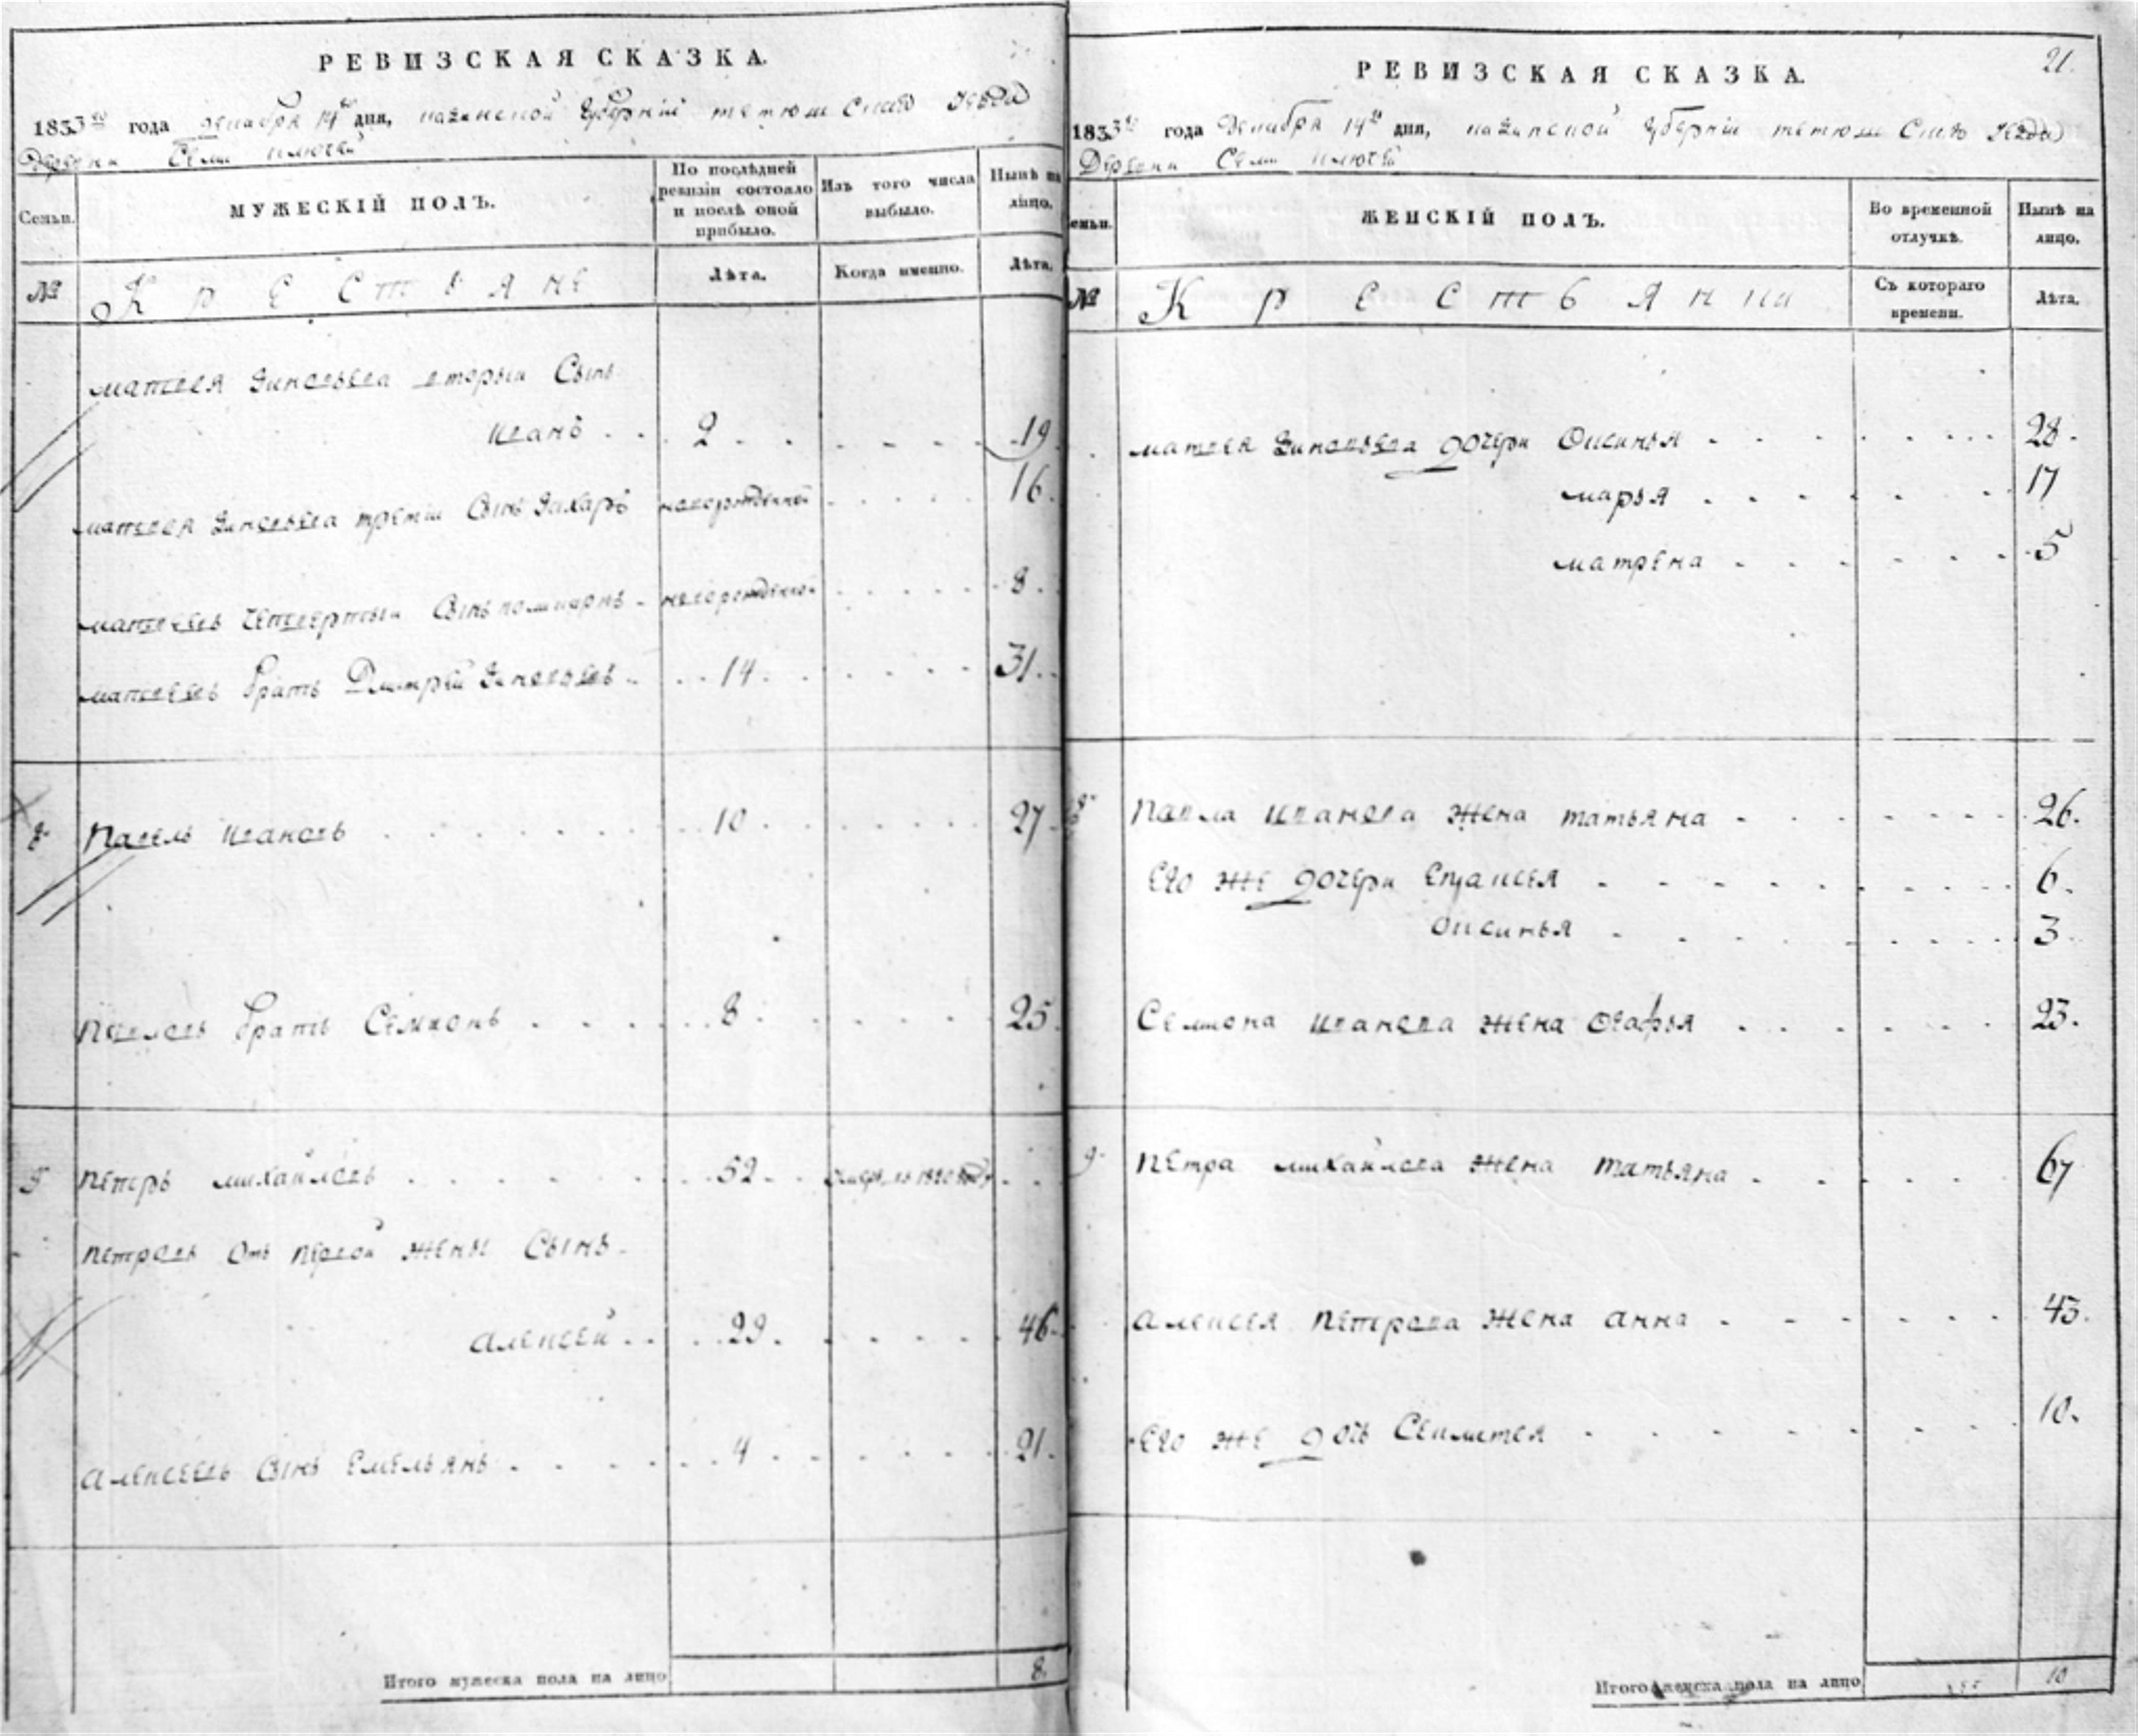 РЕВИЗСКАЯ СКАЗКА.
1833го года декабря 14го дня, казанской губернии тетюшскаго уезда
Деревни Семи ключей
Семьи.
МУЖЕСКІЙ ПОЛЪ.
По послѣдней ревизіи состояло и послѣ оной прибыло.
Изъ того числа выбыло.
Нынѣ на лицо.
№
Крестьяне
Лѣта.
Когда именно.
Лѣта.
матвея Зиновьева вторыи Сынъ
иванъ 2 19
матвея Зиновьева третіи Сынъ Захаръ новорожденной 16
матвеевъ Четвертыи Сынъ новорожденной 8
матвеевъ братъ Дмитрей Зиновьевъ 14 31
8 павелъ ивановъ 10 27
павловъ братъ Семионъ 8 25
9 петръ михайловъ 52 1820 года
петровъ Отъ первой жены Сынъ
алексей 29 46
алексеевъ Сынъ Емельянъ 4 21
Итого мужеска пола на лицо 8.
21.
РЕВИЗСКАЯ СКАЗКА.
1833го года Декабря 14го дня, казанской губерніи тетюшскаго уезда
Деревни Семи ключей
Семьи.
ЖЕНСКІЙ ПОЛЪ.
Во временной отлучкѣ.
Нынѣ на лицо.
№
Крестьянки
Съ котораго времени.
Лѣта.
матвея Зиновьева дочери Оксинья 28
марья 17
матрена 5
8 павла иванова жена татьяна 26.
Его же дочери 6.
Оксинья 3
Семиона иванова жена Огафья 23.
9 петра михайлова жена татьяна 67
алексея петрова жена анна 43.
Его же дочь 10.
Итого женска пола на лицо 10